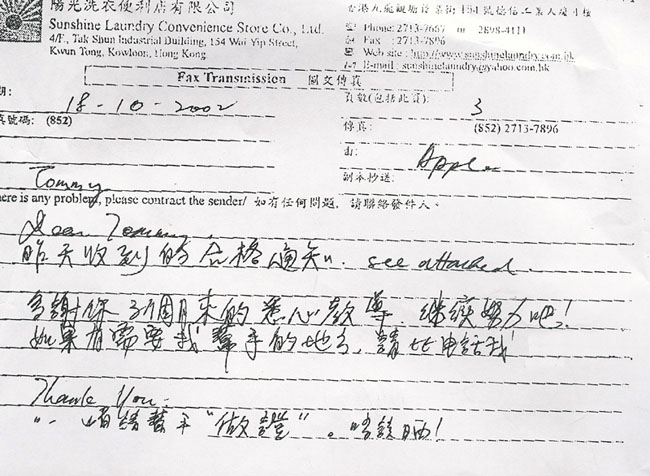 陽光洗衣便利店有限公司
Sunshine Laundry Convenience Store Co., Ltd.
4/F., Tak Shun Industrial Building, 154 Wai Yip Street,
Kwun Tong, Kowloon, Hong Kong.
Phone: 2713-7667 or 2898-4111
Fax : 2713-7896
Web site : http://www.sunshinelaundry.com.hk
E-mail : sunshinelaundry@yahoo.com.hk
Fax Transmission 圖文傳真
期: 18-10-2002
頁數(包括此頁): 3
真號碼: (852)
傳真: (852) 2713-7896
由: Apple
副本抄送:
Tommy
here is any problem, please contract the sender/ 如有任何問題, 請聯絡發件人。
Dear Tommy,
昨天收到的合格通知. see attached.
多謝你 個月來的悉心教導, 繼續努力吧!
如果有需要我幫手的地方, 請 電話我!
Thank You.
請幫手 "做證"。 晒!